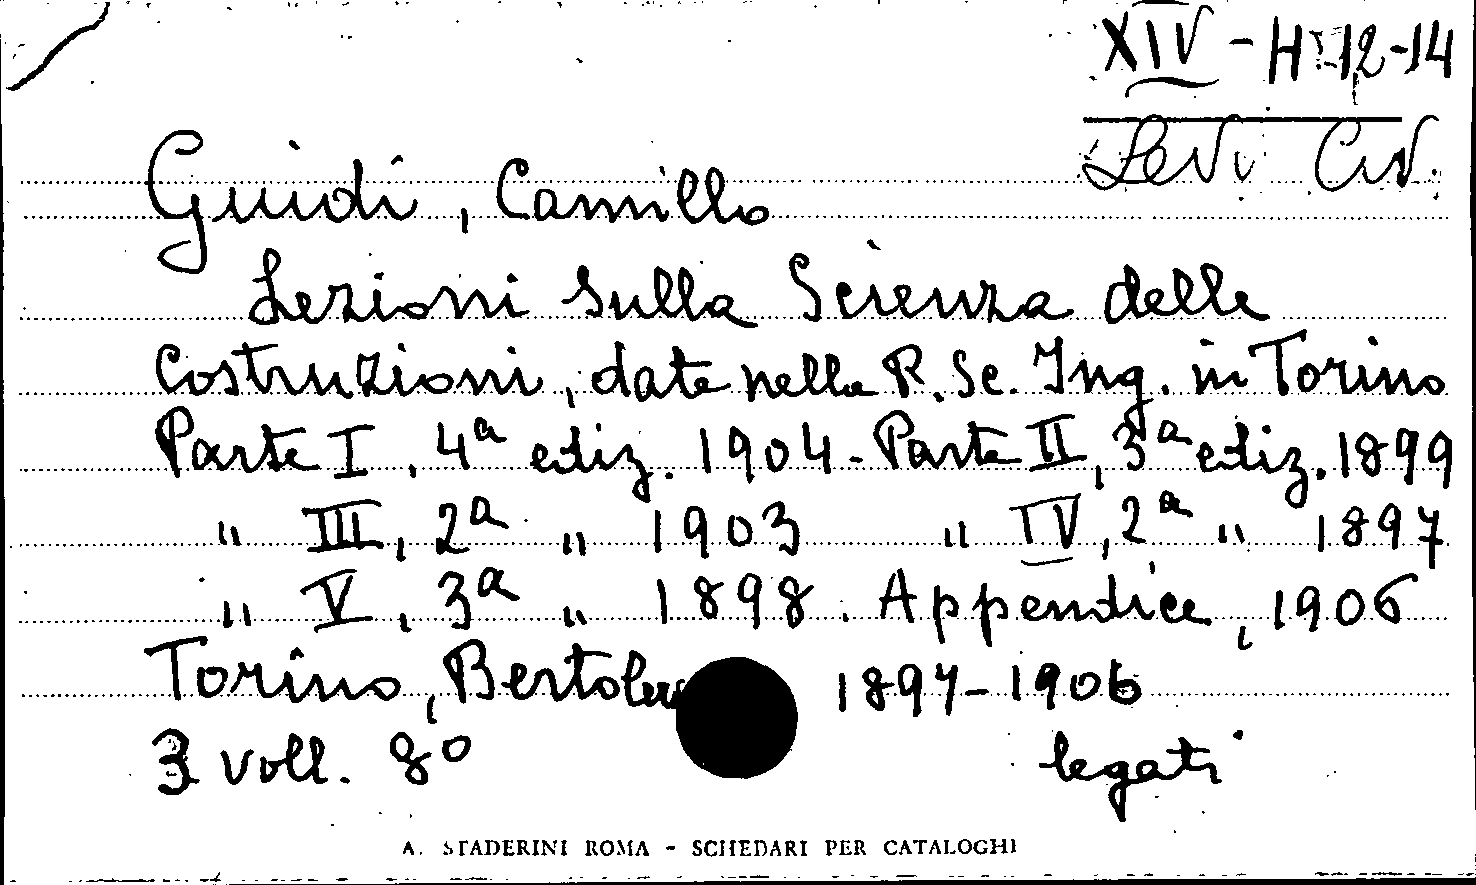 XIV - H - 12-14
Levi Civ.
Guidi, Camillo
Lezioni sulla Scienza delle
Costruzioni, date nella R. Sc. Ing. in Torino
Parte I, 4a ediz. 1904 - Parte II, 3a ediz. 1899
" III, 2a " 1903 " IV, 2a " 1897
" V, 3a " 1898. Appendice, 1906
Torino, 1897-1906
3 voll. 8o legati
A. STADERINI ROMA - SCHEDARI PER CATALOGHI